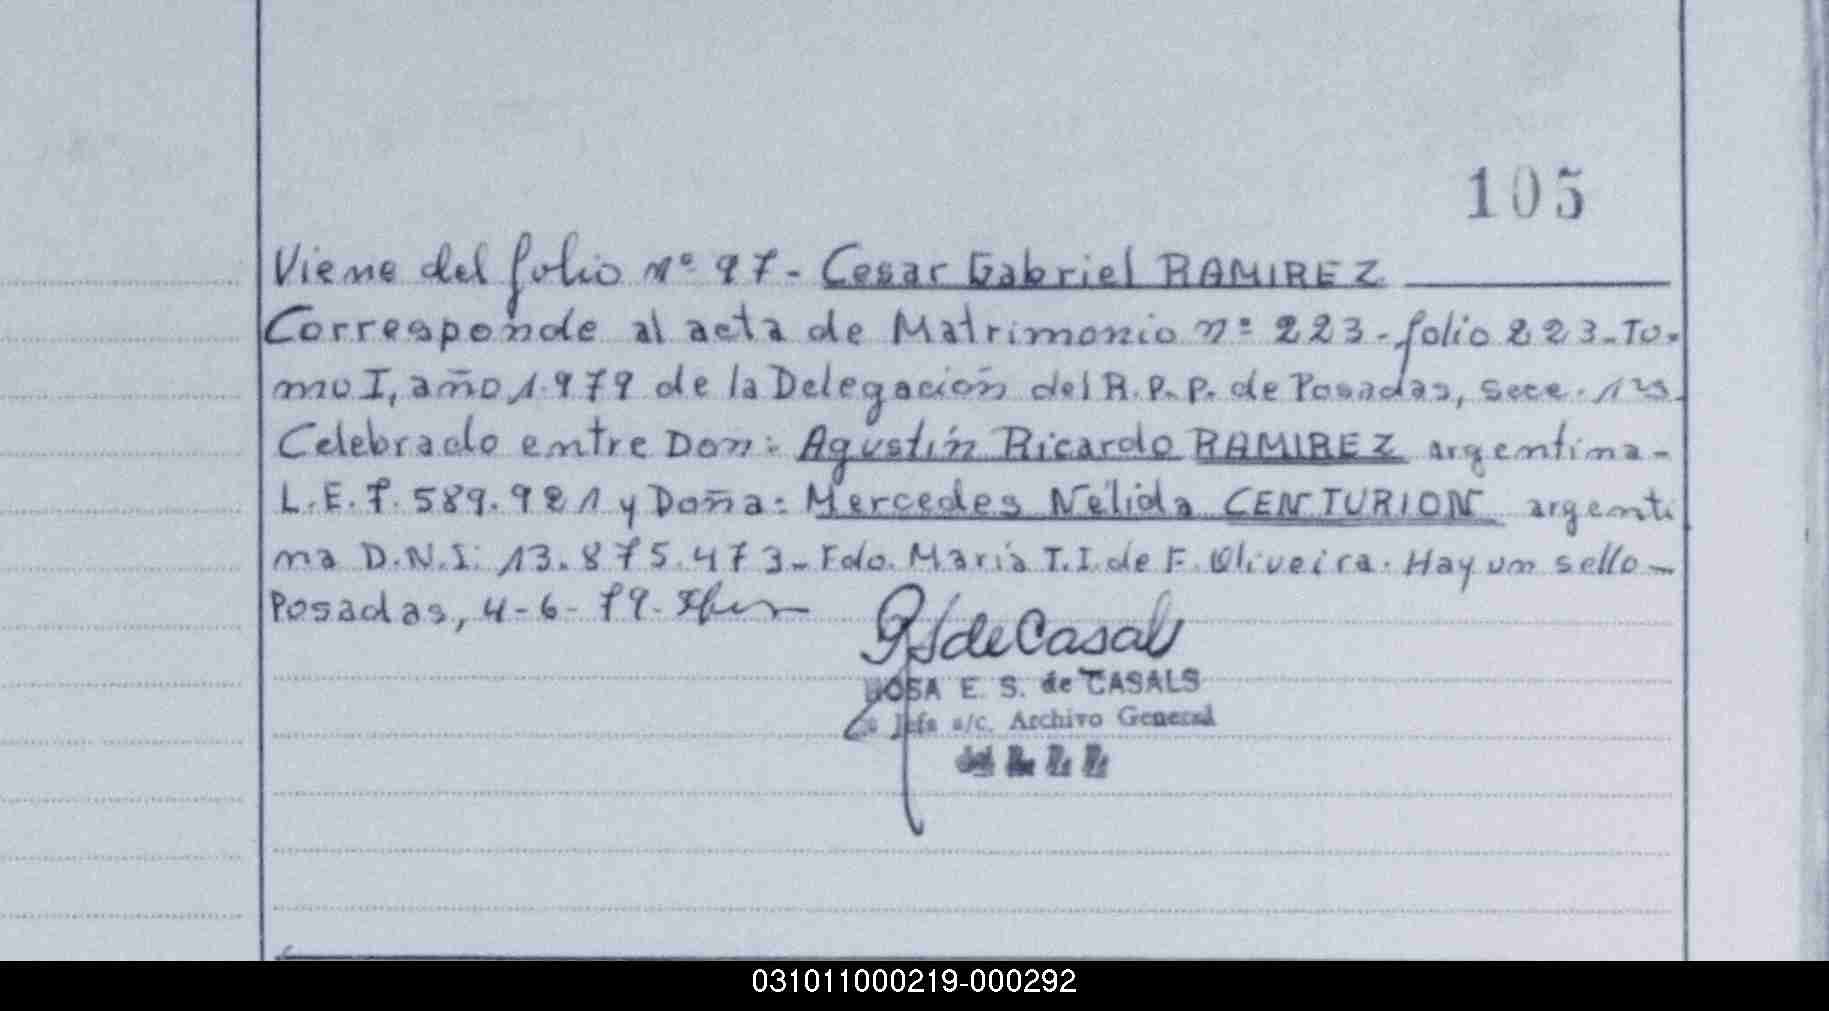 105
Viene del folio nº 97- Cesar Gabriel RAMIREZ
Corresponde al acta de Matrimonio nº 223-folio 223-To-
mo I, año 1.979 de la Delegación del R.P.P. de Posadas, Secc. 1ra.
Celebrado entre Don: Agustín Ricardo RAMIREZ argentina-
L.E. 7.589.921 y Doña: Mercedes Nélida CENTURION argenti
na D.N.I: 13.875.473- Fdo. María T.I. de F. Oliveira. Hay un sello-
Posadas, 4-6-79.
R S de Casals
ROSA E. S. de CASALS
Jefa a/c. Archivo General
del R. P. P.
031011000219-000292